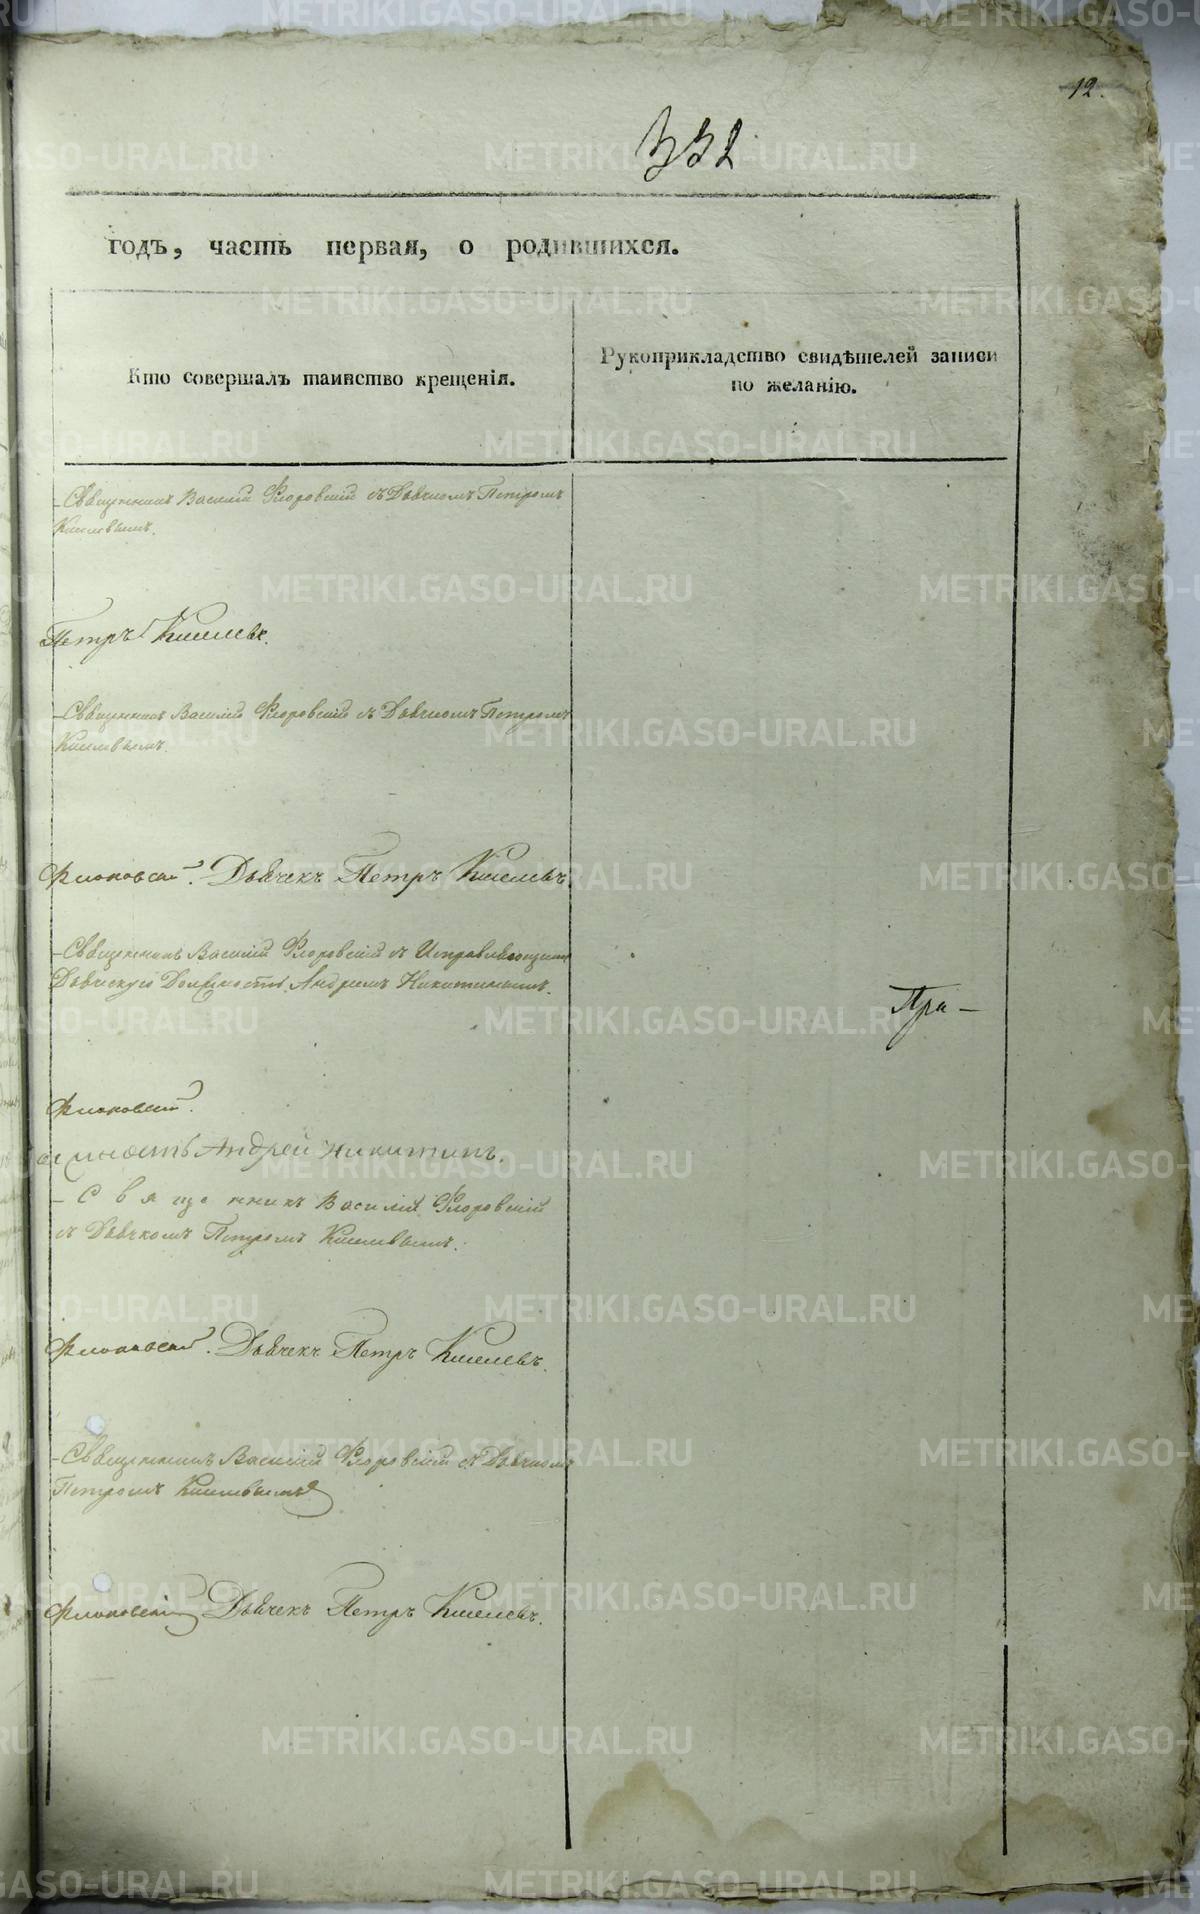 12.
332
годъ, часть первая, о родившихся.
Кто совершалъ таинство крещенія.
Рукоприкладство свидѣтелей записи
по желанію.
Священникъ Василій Флоровскій съ Дьячкомъ Петромъ
Киселевымъ.
Петръ Киселевъ.
Священникъ Василій Флоровскій съ Дьячкомъ Петромъ
Киселевымъ.
Дьячекъ Петръ Киселевъ.
Священникъ Василій Флоровскій съ Исправляющимъ
Дьяческую Должность Андреемъ Никитинымъ.
Пра-
Андрей Никитинъ.
Священникъ Василій Флоровскій
съ Дьячкомъ Петромъ Киселевымъ.
Дьячекъ Петръ Киселевъ.
Священникъ Василій Флоровскій съ Дьячкомъ
Петромъ Киселевымъ
Дьячекъ Петръ Киселевъ.
METRIKI.GASO-URAL.RU